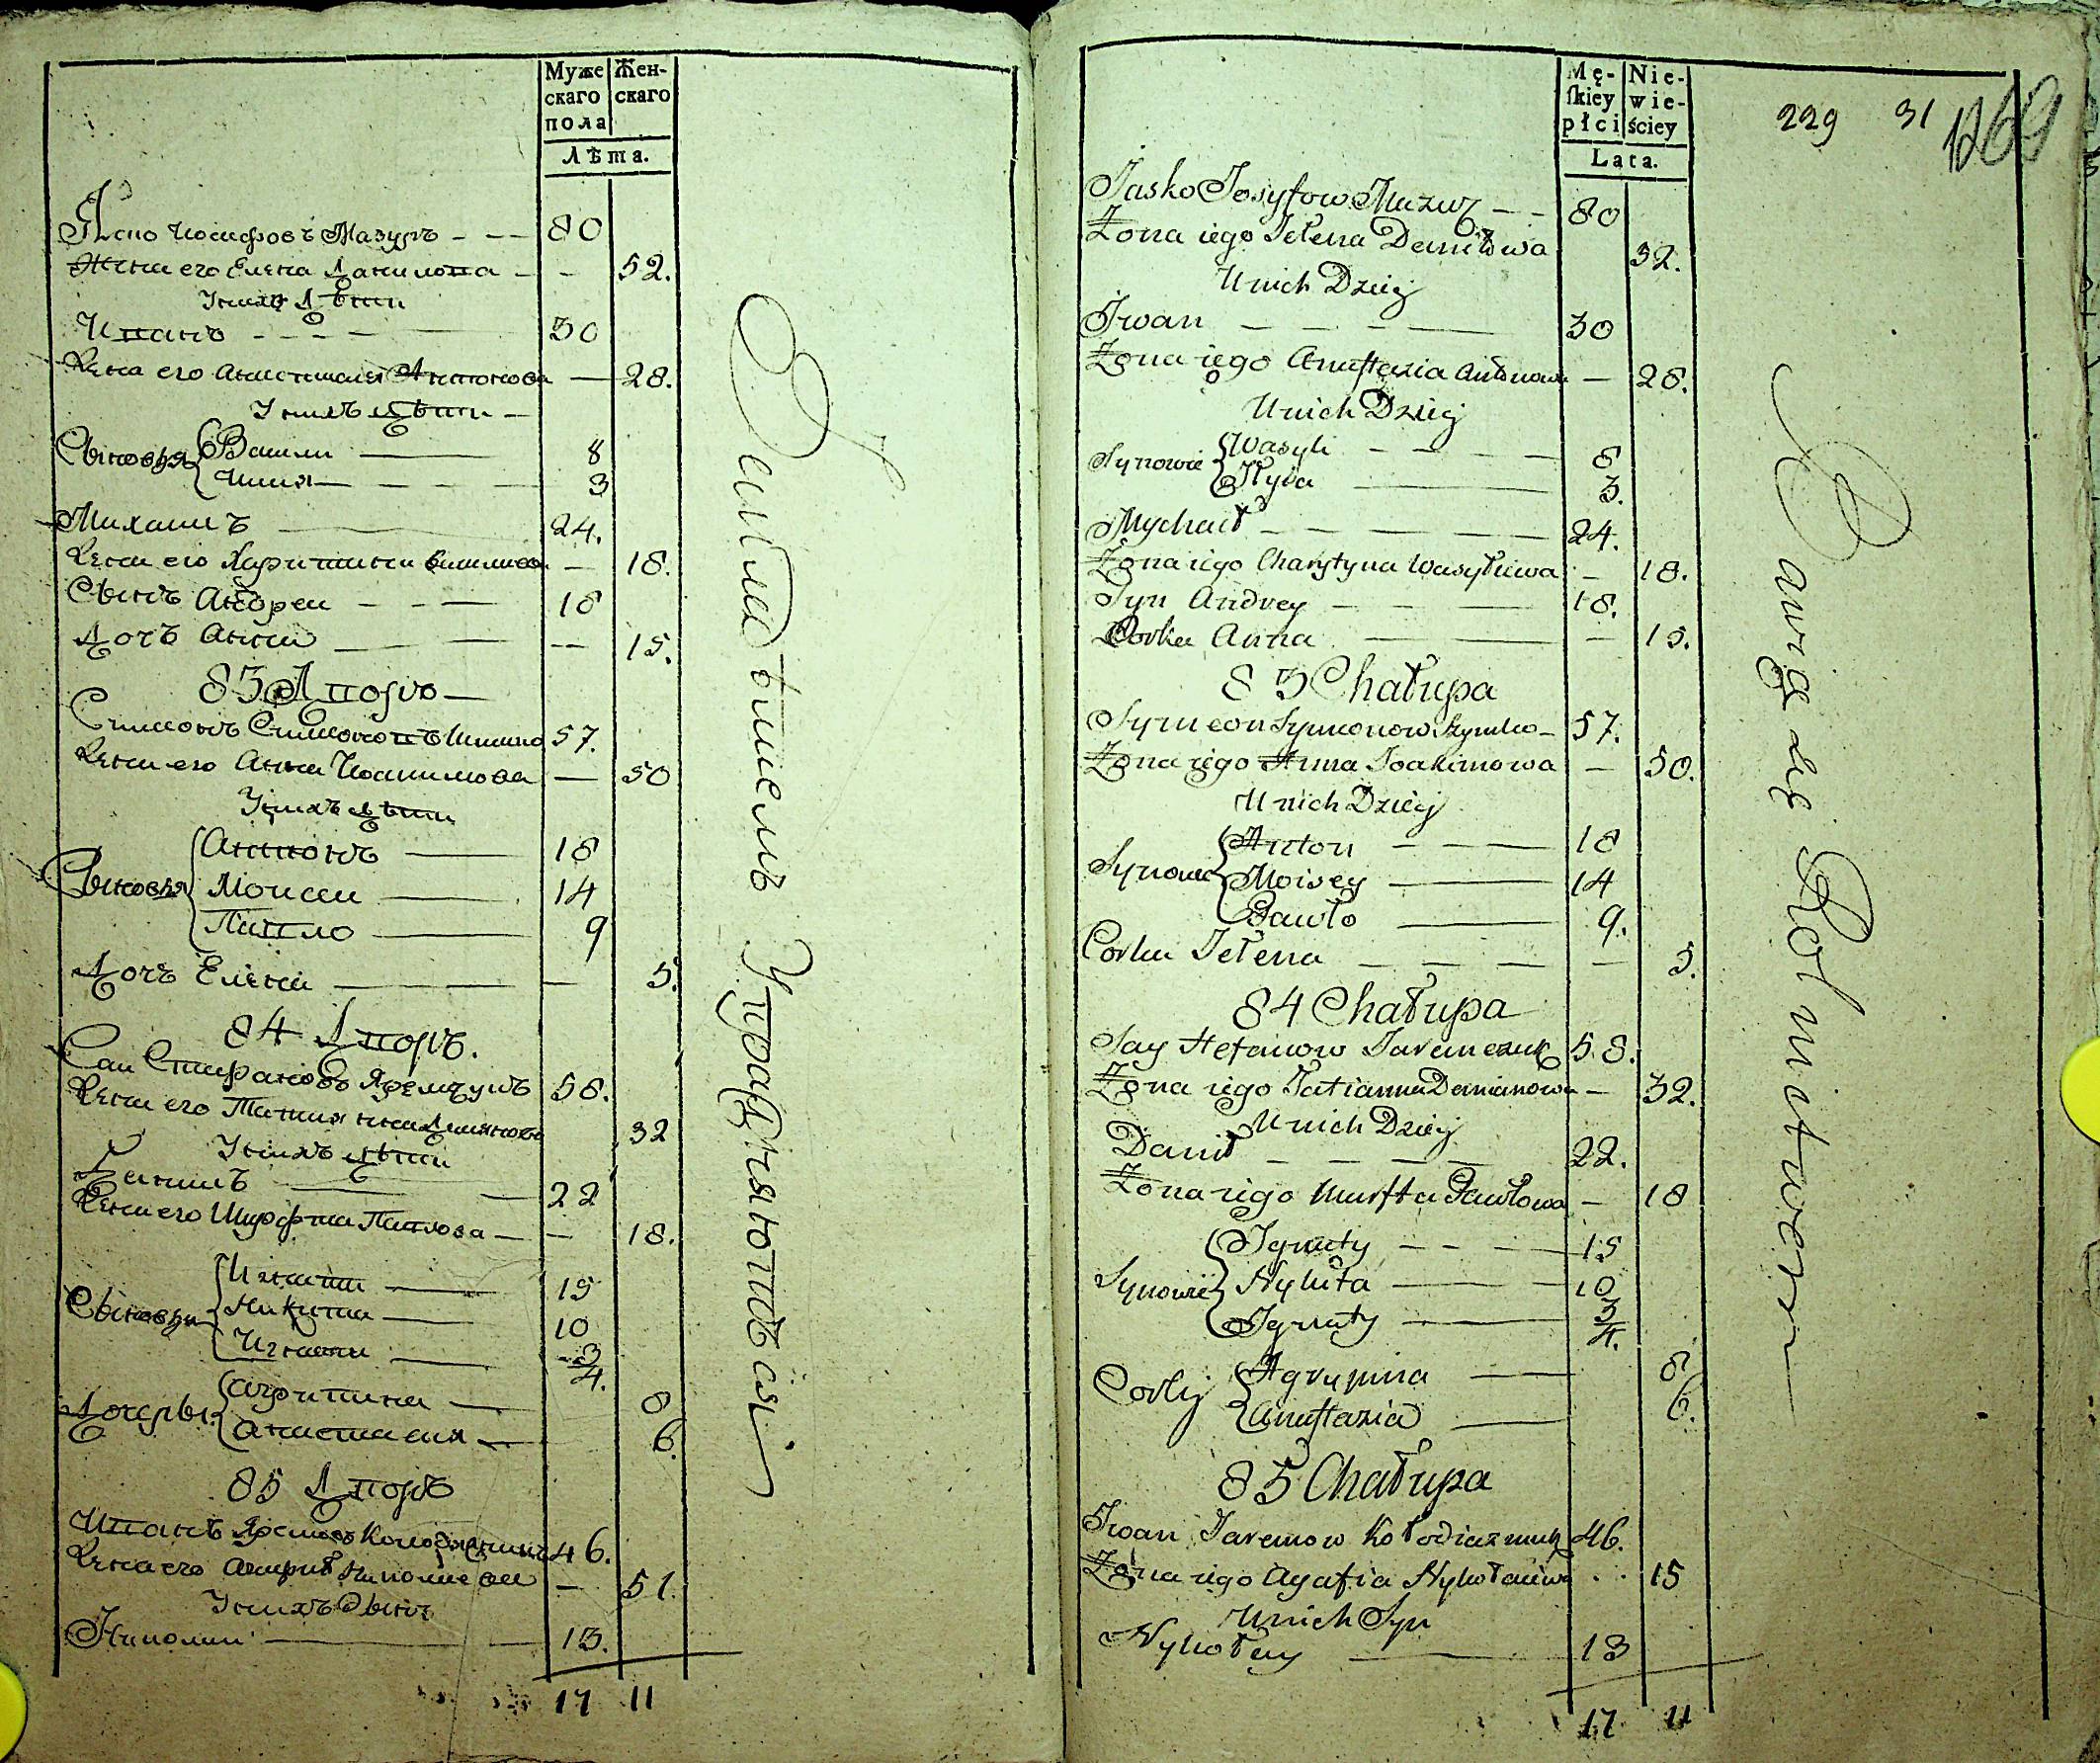 Муже
скаго
пола
Жен-
скаго
Лѣта.
Яско Иосифовъ Мазуръ - - - 80
Жена его Елена Данилова - - 52.
У нихъ Дѣти
Иванъ - - - - 30
Жена его Анастасия Антонова — 28.
У нихъ Дѣти —
Сыновья { Васили — 8
Илия — - - - 3
Михаилъ — 24.
Жена его Харитина Василиева — 18.
Сынъ Андреи - - — 18
Дочъ Анна — — -- 15.
83 Дворъ —
Симионъ Симоновъ Шимко 57.
Жена его Анна Иоакимова — 50
У нихъ Дѣти
Сыновья { Антонъ — 18
Моисеи — 14
Павло — 9
Дочъ Елена — — 5.
84 Дворъ.
Саи Стефановъ Яремчукъ 58.
Жена его Татияна Демянова 32
У нихъ Дѣти
Данилъ — — 22
Жена его Павлова — — 18.
Сыновья { Игнати — 15
Никита — 10
Игнати — 3/4.
Дочеры { Агрипина — 8
Анастасия — 6.
85 Дворъ
Иванъ Яремовъ 46.
Жена его Николаева — 51.
У нихъ Сынъ
Николаи — — 13.
17 11
Земледѣлиемъ Упражняютъся
Mę-
ſkiey
płci
Nie-
wie-
ściey
Lata.
229 31 1269
Jasko Josyfow Mazur — - 80
Żona iego Jełena Daniłowa 32.
U nich Dzieci
Jwan — — - — 30
Żona iego Anastazia Antonowa — 28.
U nich Dzieci
Synowie { Wasyli - - - — 8
Jłyia — 3.
Mychaił - — — — 24.
Żona iego Charytyna Wasyliewa - 18.
Syn Andrey — — — 18.
Corka Anna — — 15.
83 Chałupa
Symeon Symonow Szymko - 57.
Żona iego Anna Joakimowa — 50.
U nich Dzieci
Synowie { Anton - — — 18
Moisey — 14
Pawło — 9.
Corka Jełena — — — — 5.
84 Chałupa
Say Stefanow Jaremczuk 58.
Żona iego Tatianna Demianowa — 32.
U nich Dzieci
Danił — — — — 22.
Żona iego Pawłowa — 18
Synowie { Jgnaty — - - — 15
Nykita — 10
Jgnaty — 3/4.
Corki { Agrypina — 8
Anastazia — 6.
85 Chałupa
Jwan Jaremow Kołodiażnuk 46.
Żona iego Agafia Nykołaiewa . . 15
U nich Syn
Nykołay — 13
17 11
Bawią się Rolnictwem —